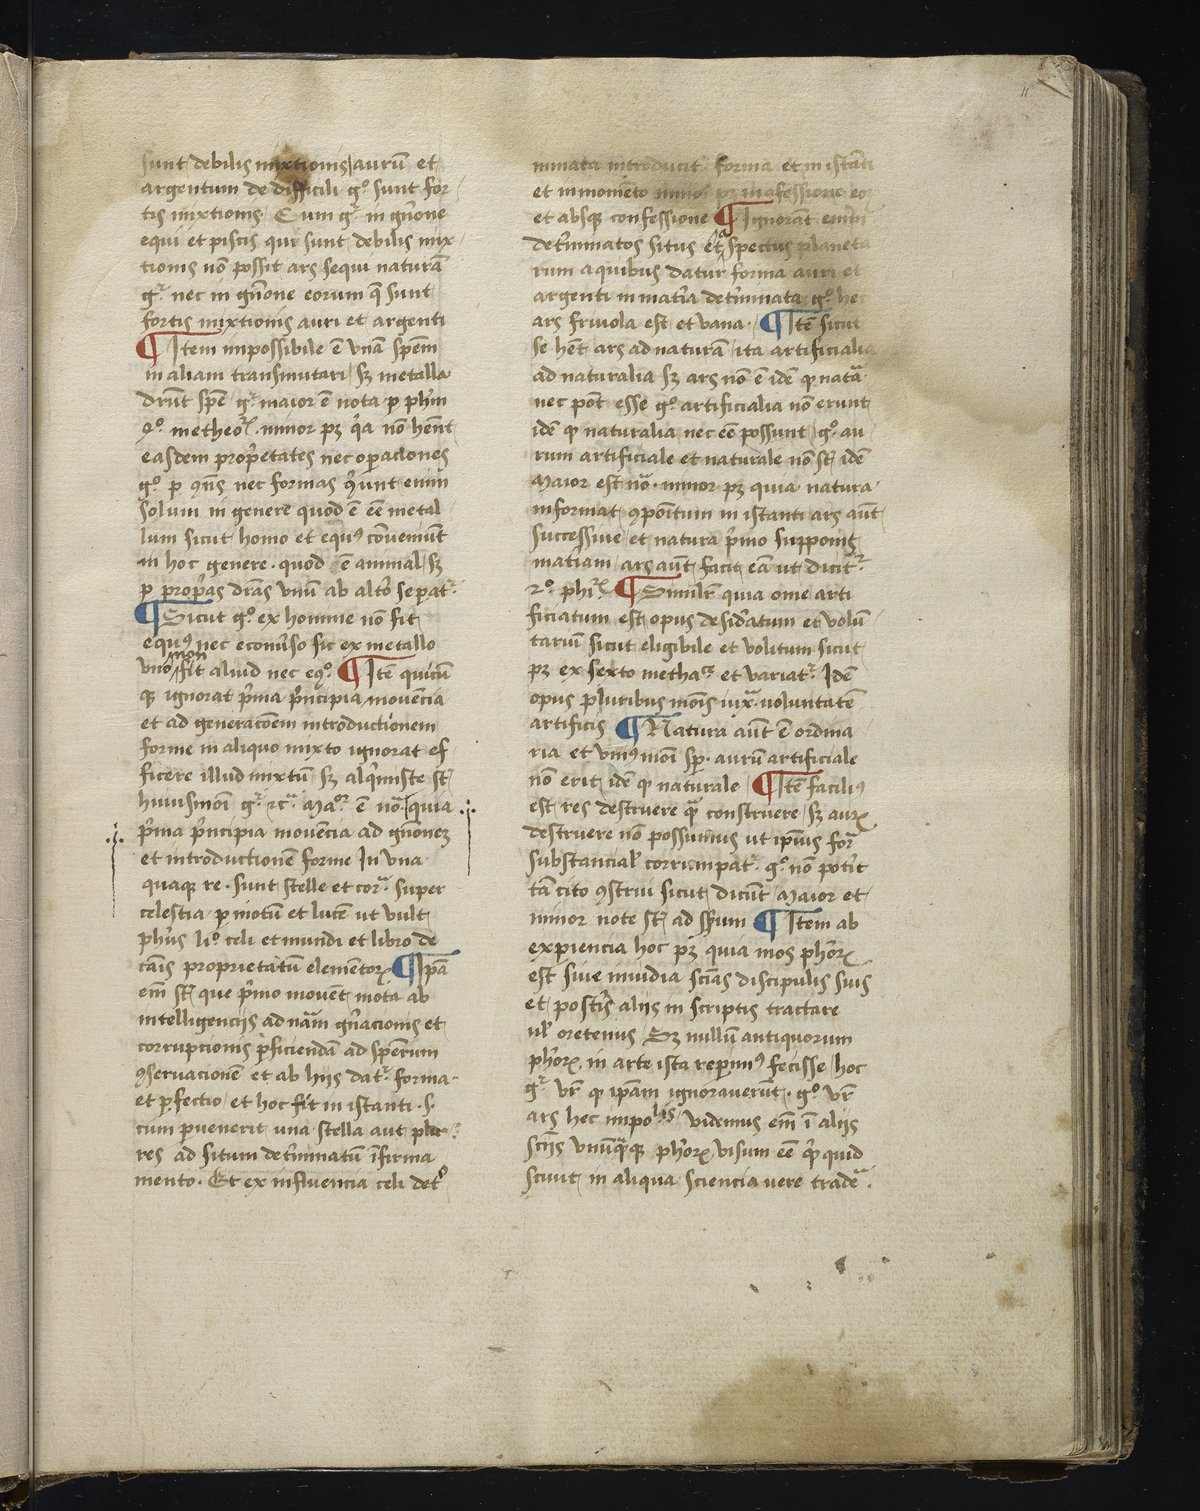 11
sunt debilis mixtionis aurū et
argentum de difficili gͦ sunt for
tis mixtionis Cum gͬ in gn̄one
equi et piscis qui sunt debilis mix
tionis nō possit ars sequi naturā
gͬ nec in gn̄one eorum q̄ sunt
fortis mixtionis auri et argenti
¶ Item impossibile ē vnā spēm
in aliam transmutari sꝫ metalla
drn̄t spē gͬ maior ē nota ꝑ ph̄m
4ͦ metheoꝝ. minor pꝫ q̓a nō hēnt
easdem prop̓etates nec oꝑaciones
gͦ ꝑ ꝯn̄s nec formas ꝯ̓unt enim
solum in genere quod ē eē metal
lum sicut homo et equꝰ cōueniūt
in hoc genere. quod ē animal sꝫ
ꝑ prop̓as drās vnū ab alt̓o seꝑatͬ.
¶ Sicut gͦ ex homine nō fit
equꝰ nec econu̓so sic ex metallo
vno non fit aliud nec eqͦ. ¶ Itē quicū
qꝫ ignorat p̓ma p̓ncipia mouēcia
et ad generacōem introductionem
forme in aliquo mixto ignorat ef
ficere illud mixtū sꝫ alq̓miste st̄
huiusmōi gͬ ꝛcͣ. Maͦꝛ ē nōͣ quia
p̓ma p̓ncipia mouēcia ad gn̄onez
et introductionē forme In vna
quaqꝫ re. sunt stelle et corͣ super
celestia ꝑ motū et lucē ut vult
ph̓us liͦ celi et mundi et libro de
cāis proprietatū elemētoꝝ ¶ Ipā
em̄ st̄ que p̓mo mouēt mota ab
intelligencijs ad nām gn̓acionis et
corrupcionis ꝑficiendā ad spērum
ꝯseruacionē et ab hijs datͬ. forma.
et ꝑfectio et hoc fit in istanti .s.
cum ꝑuenerit una stella aut plu
res ad situm det̓minatū ī firma
mento. Et ex influencia celi det̓
minata introducit forma et in istāti
et in momēto minor pꝫ in ꝯfessione eoꝝ
et absqꝫ confessione ¶ Ignorāt enim
det̓minatos situs et aspectus planeta
rum a quibus datur forma auri et
argenti in mat̓ia det̓minata gͦ hec
ars friuola est et vana. ¶ Itē sicut
se hēt ars ad naturā ita artificialia
ad naturalia sꝫ ars nō ē idē qꝫ natͣa
nec pōt esse gͦ artificialia nō erunt
idē qꝫ naturalia nec eē possunt gͦ. au
rum artificiale et naturale nō st̄ idē
Maior est nōͣ. minor pꝫ quia natura
informat ꝯpōitum in istanti ars aūt
successiue et natura p̓mo supponit
matiam ars aūt facit eā ut dicitͬ.
2ͦ phiꝝ ¶ Similr̄ quia ome arti
ficiatum est opus desid̓atum et volū
tariū sicut eligibile et volitum sicut
pꝫ ex sexto methacͤ et variatͬ. Idē
opus pluribus mōis iuxͣ voluntatē
artificis ¶ Natura aūt ē ordina
ria et vniꝰ mōi sꝑ. aurū artificiale
nō erit idē qꝫ naturale ¶ Itē faciliꝰ
est res destruere qͣ̄ construere sꝫ auꝝ
destruere nō possumus ut ipīus forͣ
substancial̓ corrumpatͬ. gͦ nō pot̓it
tā cito ꝯstrui sicut dicūt Maior et
minor note st̄ ad ss̄um ¶ Item ab
exꝑiencia hoc pꝫ quia mos ph̓oꝝ
est siue inuidia sciās discipulis suis
et post̓is alijs in scriptis tractare
ul̓ oretenus Sꝫ nullū antiquorum
ph̓oꝝ in arte ista reꝑimꝰ fecisse hoc
gͬ vr̄ qꝫ ipām ignorauerūt. gͦ vr̄
ars hec impolis videmus em̄ ī alijs
sciis vnūqͣqꝫ ph̓oꝝ visum eē qꝫ quid
sciuit in aliqua sciencia uere tradeͣ.